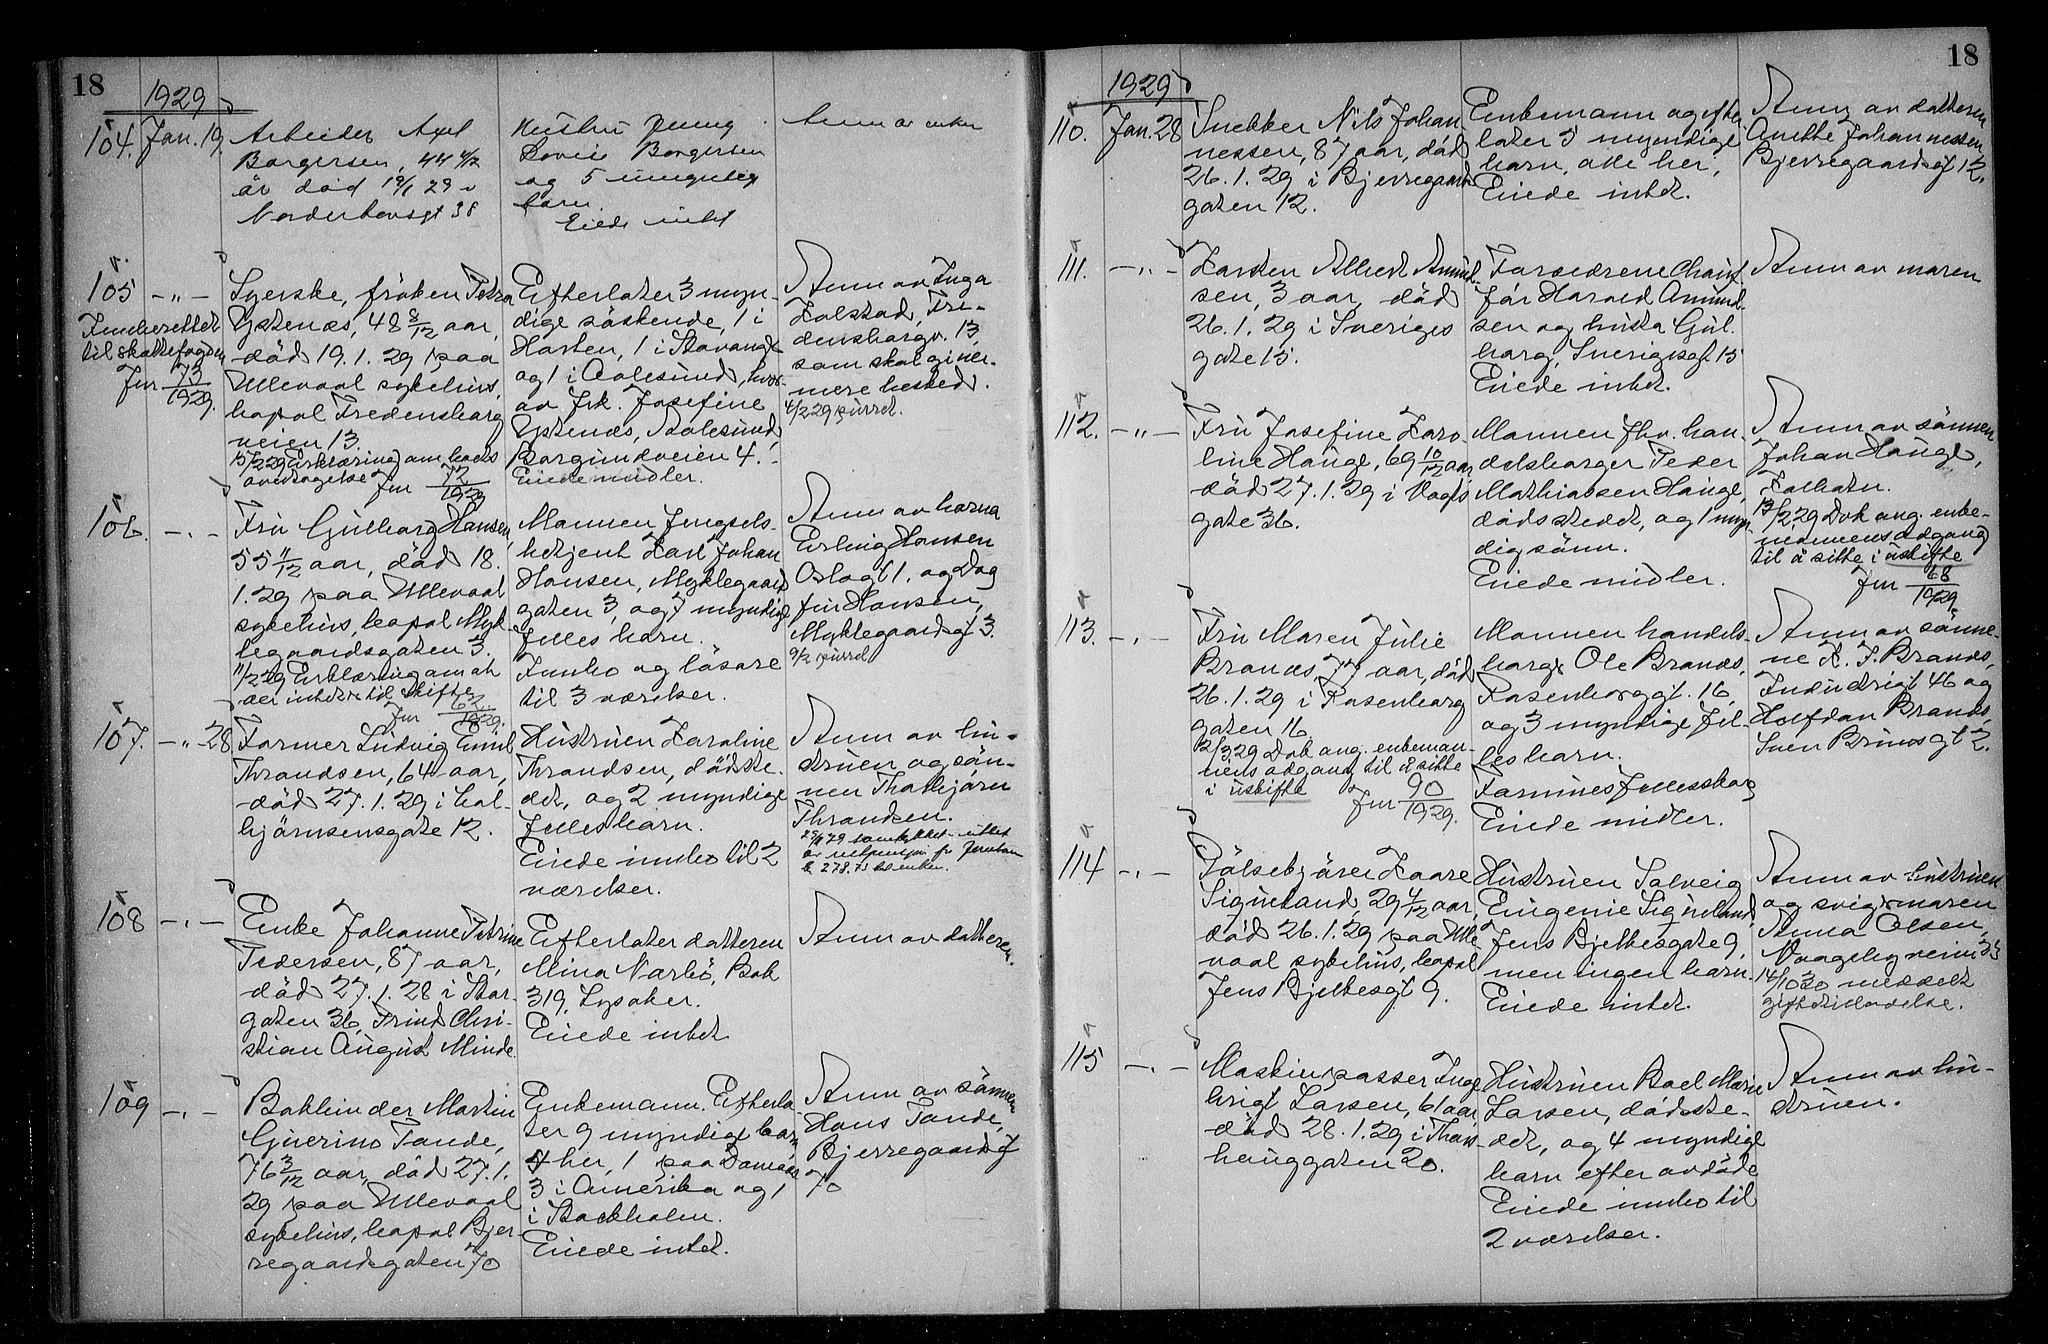 18
1929
104. Jan. 19.
Arbeider Axel
Borgersen, 44 4/12
år død 19/1 29 i
Norderhovsgt 38
Hustru Jenny
Lovise Borgersen
og 5 umyndig
barn.
Eiede intet
Anm av enken
105 -"-
Innberettet
til skattefogden
Jnr 73/1929.
Syerske, frøken Petra
Ystenæs, 48 8/12 aar,
død 19.1.29 paa
Ullevaal sykehus,
bopæl Fredensborg
veien 13.
15/2 29 Erklæring om boets
overtagelse
Jnr 72/1929
Efterlater 3 myn-
dige søskende, 1 i
Horten, 1 i Stavanger
og 1 i Aalesund, hvor-
av frk. Josefine
Ystenæs, Aalesund,
Borgundveien 4.
Eiede midler.
Anm av Inga
Folstad, Fre-
densborgv. 13,
som skal gi nær-
mere besked.
4/2 29 purret.
106. -"-
Fru Gulborg Hansen,
55 11/12 aar, død 18.
1.29 paa Ullevaal
sykehus, bopæl Myk
legaardsgaten 3.
11/2 29 Erklæring om at
der intet er til skifte
Jnr 62/1929.
Mannen fengsels-
betjent Karl Johan
Hansen, Myklegaard
gaten 3, og 7 myndige
felles barn.
Innbo og løsøre
til 3 værelser.
Anm av barna
Erling Hansen
Oslogt 1, og Dag
finn Hansen,
Myklegaardsgt 3.
9/2 purret
107. -"- 28
Former Ludvig Emil
Thrandsen, 64 aar,
død 27.1.29 i Hal-
bjørnsensgate 12.
Hustruen Karoline
Thrandsen, dødste-
det, og 2 myndige
felles barn.
Eiede innbo til 2
værelser.
Anm av hu-
struen og søn-
nen Thorbjørn
Thrandsen.
108 -"-
Enke Johanne Petrine
Pedersen, 87 aar,
død 27.1.28 i Stor-
gaten 36, Trind Chri-
stian August Minde
Efterlater datteren
Mina Narbø, Bok
319, Lysaker.
Eiede intet
Anm av datteren.
109 -"-
Bokbinder Martin
Guerino Tande,
76 3/12 aar, død 27.1.
29 paa Ullevaal
sykehus, bopæl Bjer
regaardsgaten 70
Enkemann. Efterla-
ter 9 myndige barn
4 her, 1 paa
3 i Amerika og 1
i Stockholm.
Eiede intet.
Anm av sønnen
Hans Tande,
Bjerregaardsgt
70
18
1929
110. Jan. 28
Snekker Nils Johan
nessen, 87 aar, død
26.1.29 i Bjerregaard
gaten 12.
Enkemann og efter
later 5 myndige
barn, alle her,
Eiede intet.
Anm av datteren
Anette Johannessen
Bjerregaardsgt 12.
111. -"-
Karsten Albert Amund-
sen, 3 aar, død
26.1.29 i Sveriges
gate 15.
Forældrene Chauf-
før Harald Amund-
sen og hustru Gul-
borg, Sverigesgt 15
Eiede intet.
Anm av moren
112. -"-
Fru Josefine Karo-
line Hauge, 69 10/12 aar
død 27.1.29 i Vogts
gate 36.
Mannen fhv. han-
delsborger Peder
Mathiassen Hauge,
dødsstedet, og 1 myn-
dig sønn.
Eiede midler.
Anm av sønnen
Johan Hauge,
13/2 29 Dok ang. enke-
mannens adgang
til å sitte i uskifte
Jnr 68/1929.
113. -"-
Fru Maren Julie
Brænds 77 aar, død
26.1.29 i Rosenborg
gaten 16.
12/3 29 Dok ang. enkeman-
nens adgang til å sitte
i uskifte
Jnr 90/1929.
Mannen handels-
borger Ole Brænds,
Rosenborggt. 16,
og 3 myndige fel-
les barn.
Formuesfellesskap
Eiede midler.
Anm av sønne-
ne K. J. Brænds,
Industrigt 46 og
Halfdan Brænds,
Sven Brunsgt 2.
114 -"-
Pølsekjører Kaare
Signeland, 29 4/12 aar,
død 26.1.29 paa Ulle-
vaal sykehus, bopæl
Jens Bjelkesgt 9.
Hustruen Solveig
Eugenie Signeland,
Jens Bjelkesgate 9,
men ingen barn.
Eiede intet.
Anm av hustruen
og svigermoren
Anna Olsen,
14/10 30 meddelt
giftetilladelse.
115 -"-
Maskinpasser Inge
brigt Larsen, 61 aar
død 28.1.29 i Thors-
hauggaten 20.
Hustruen Boel Marie
Larsen, dødsste-
det, og 4 myndige
barn efter avdøde
Eiede innbo til
2 værelser.
Anm av hu-
struen.